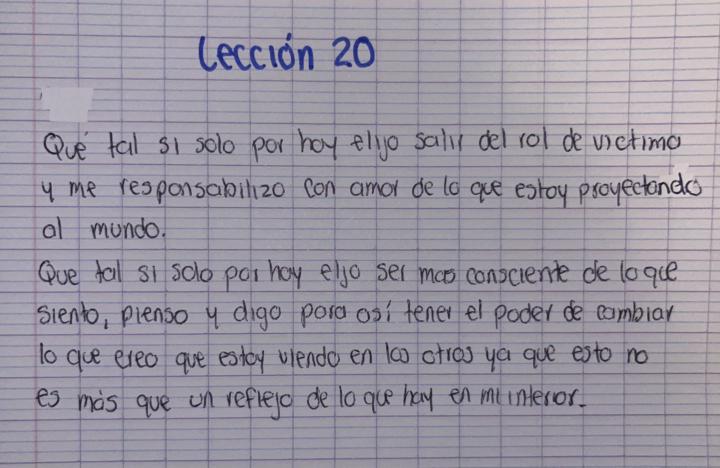 Lección 20
Qué tal si solo por hoy elijo salir del rol de victima
y me responsabilizo con amor de lo que estoy proyectando
al mundo.
Que tal si solo por hoy elijo ser mas consciente de lo que
siento, pienso y digo para así tener el poder de cambiar
lo que creo que estoy viendo en los otros ya que esto no
es más que un reflejo de lo que hay en mi interior.